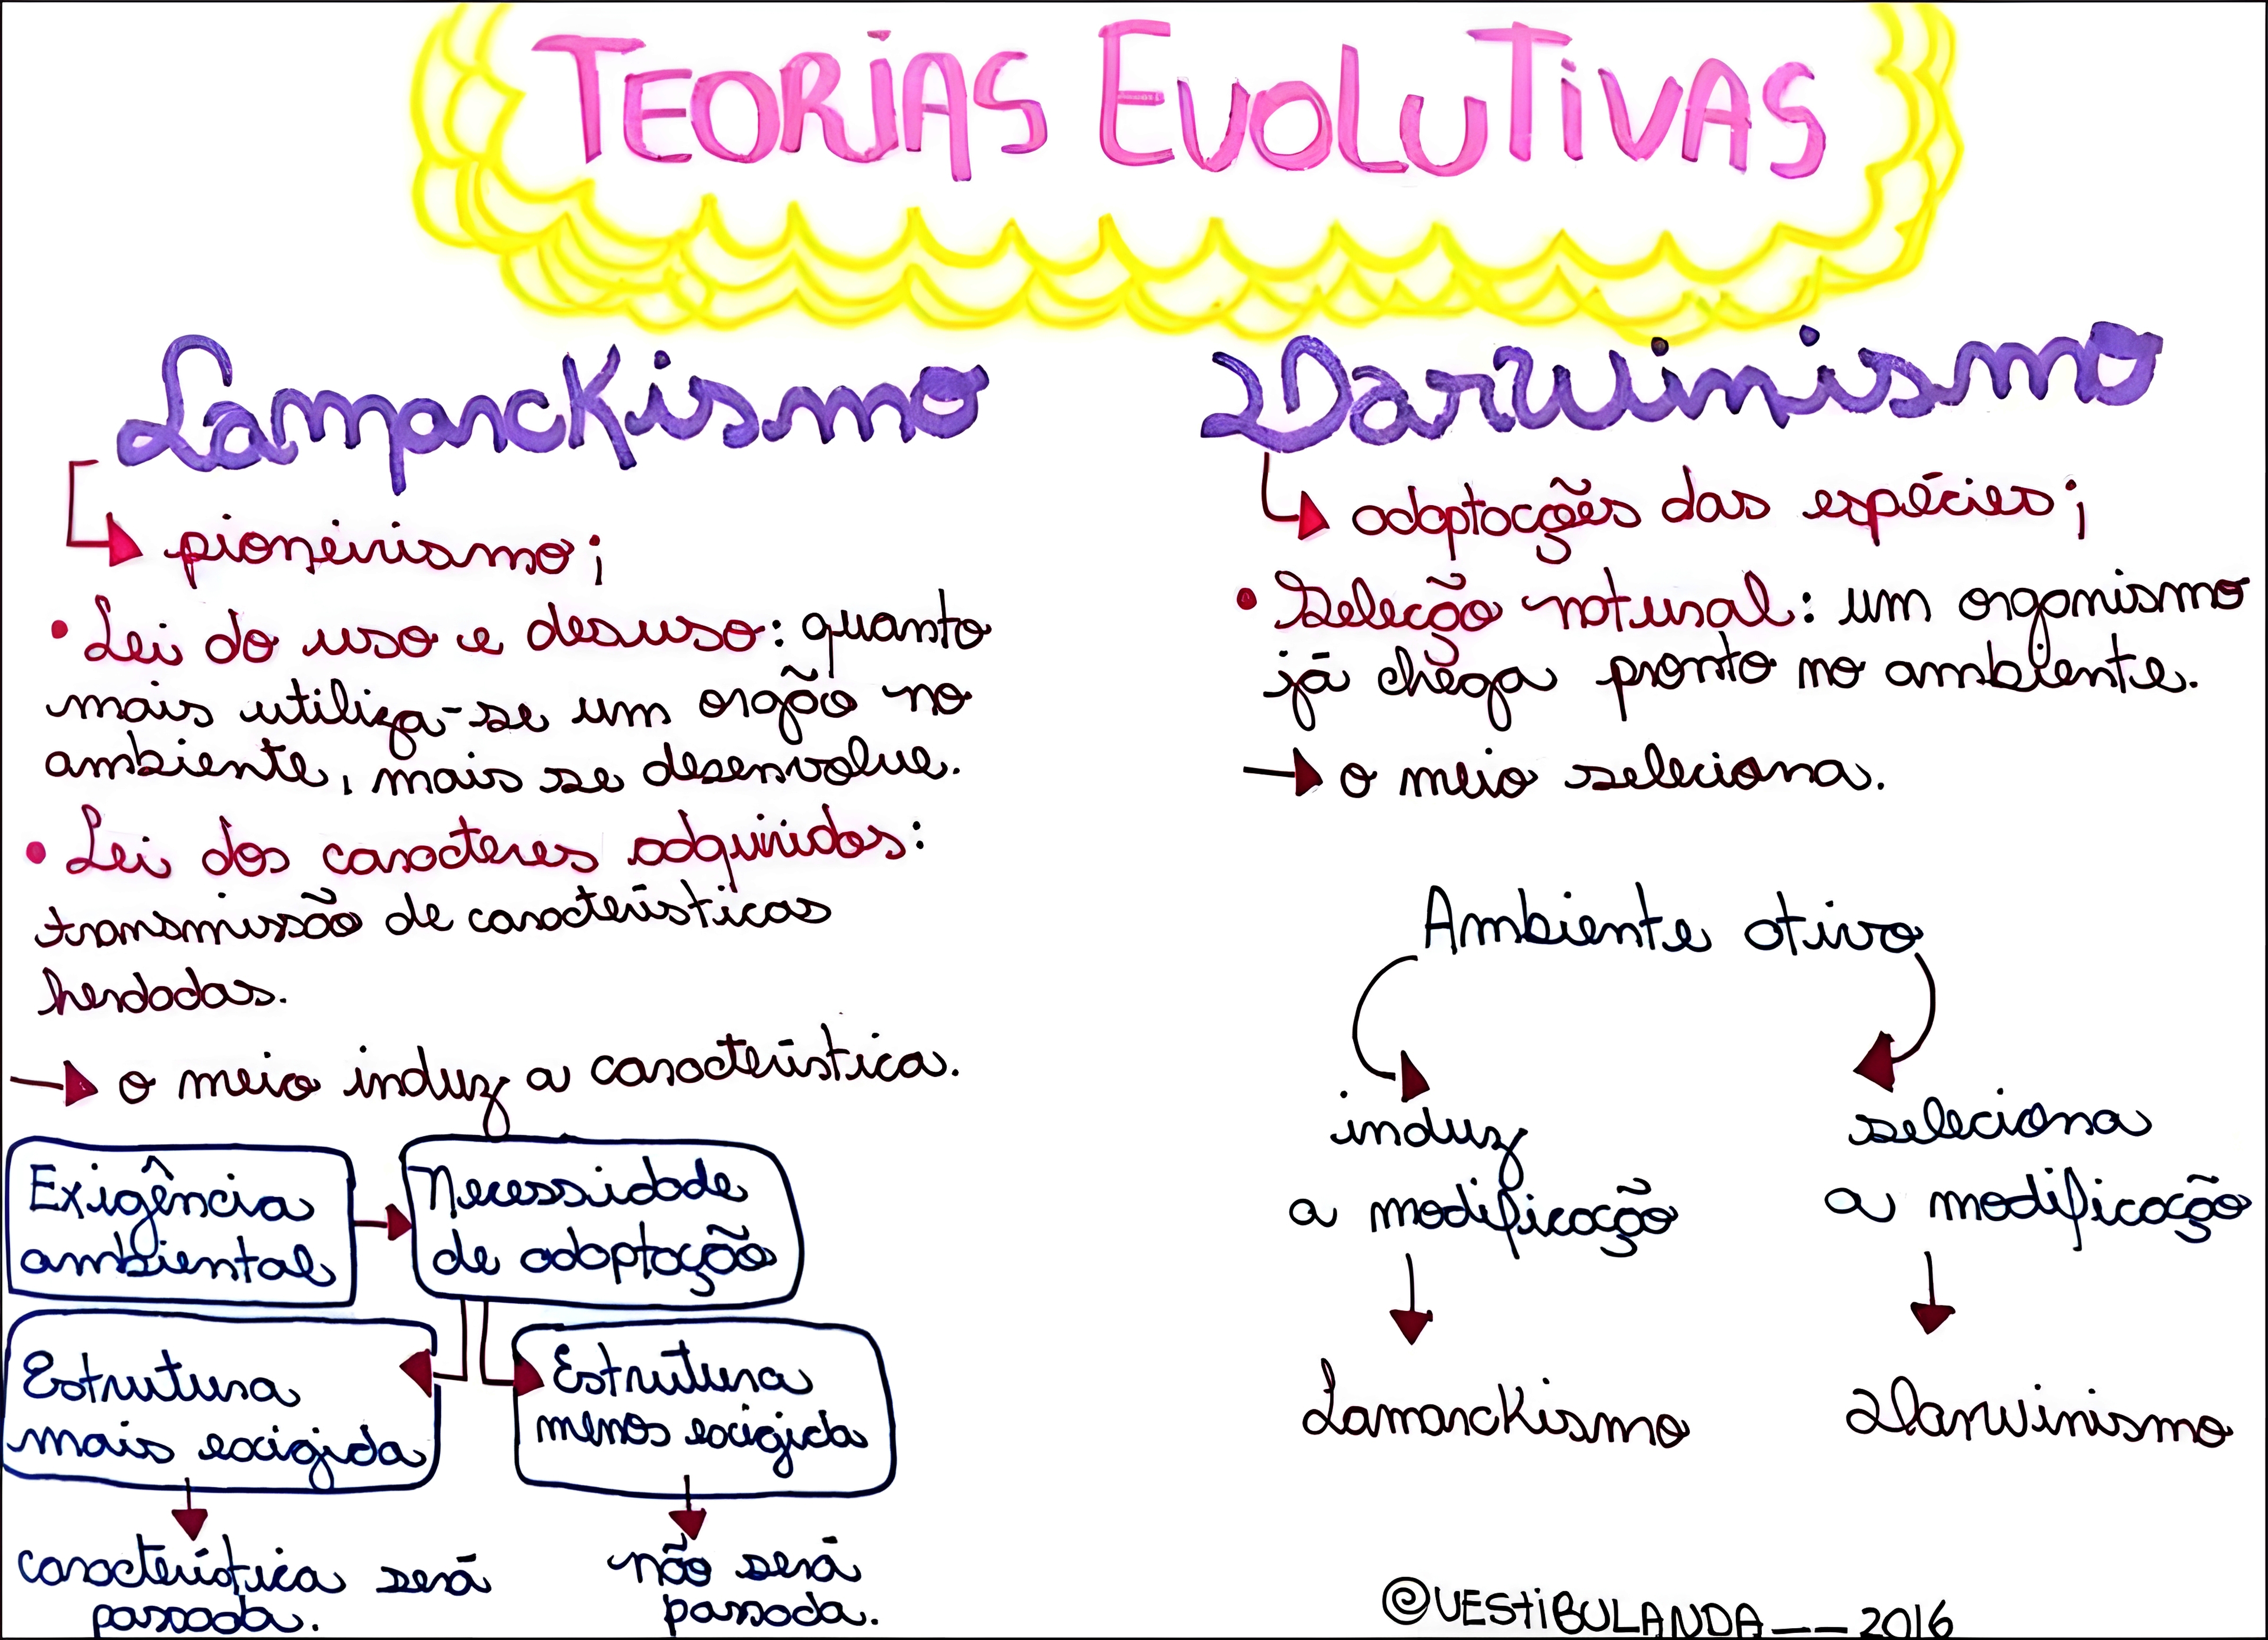 TEORIAS EVOLUTIVAS
Lamarckismo
pioneirismo;
• Lei do uso e desuso: quanto
mais utiliza-se um orgão no
ambiente, mais se desenvolve.
• Lei dos caracteres adquiridos:
transmissão de características
herdadas.
o meio induz a característica.
Exigência
ambiental
Necessidade
de adaptação
Estrutura
mais exigida
Estrutura
menos exigida
característica será
passada.
não será
passada.
Darwinismo
adaptações das espécies;
• Seleção natural: um organismo
já chega pronto no ambiente.
o meio seleciona.
Ambiente ativo
induz
a modificação
Lamarckismo
seleciona
a modificação
Darwinismo
@VESTIBULANDA__2016